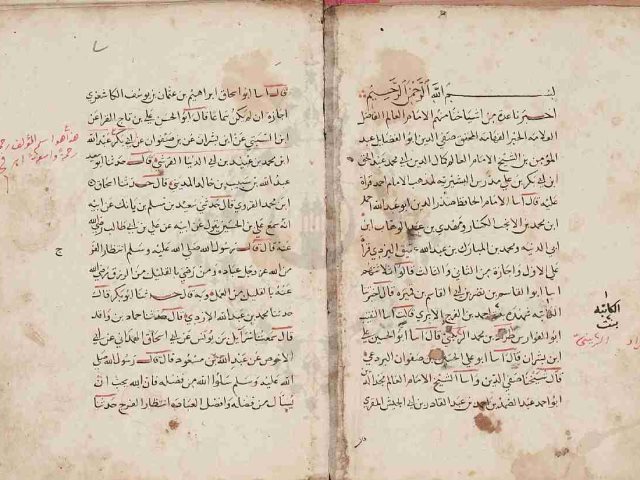 بسم الله الرحمن الرحيم
اخبرنا عدة من اشياخنا منهم الامام العالم الفاضل
العلامة الحبر الفهامة المحقق صفي الدين ابو الفضايل عبد
المومن بن الشيخ الامام العالم كمال الدين ابي محمد عبد الحق
مدرس البشيرية لمذهب الامام احمد قراة
عليه قال انا الامام الحافظ ابو عبد الله
محمد بن
ابي الدنيه ومحمد بن المبارك بن عبد الله
على الاول واجازة من الثاني والثالث قالوا
انا ابو القاسم بن نصر بن ابي القاسم بن
الكاتبة شهدة بنت احمد بن الفرج الابري قالت انا النقيب
ابو الفوارس طراد بن محمد الزينبي قال انا ابو الحسين علي
ابن بشران قال انا ابو علي الحسين بن صفوان البردعي
قال شيخنا صفي الدين وانا الشيخ الامام العالم مجد الدين
ابو احمد عبد الصمد بن احمد بن عبد القادر بن ابي الجيش المقري
الكاتبة
بنت
قال انا ابو اسحاق ابراهيم بن عثمان بن يوسف الكاشغري
اجازة ان لم يكن سماعا قال ابو الحسن علي بن تاج القراء عن
ابن بشران عن ابن صفوان عن ابي بكر عبد الله
ابن محمد بن عبيد بن ابي الدنيا القرشي قال حدثنا ابو سعيد
عبد الله بن شبيب بن خالد المديني قال حدثنا اسحاق
ابن محمد الفروي قال حدثني سعيد بن مسلم بن بانك عن ابيه
انه سمع علي بن الحسين يقول عن ابيه عن علي بن ابي طالب رضي الله
عنه قال قال رسول الله صلى الله عليه وسلم انتظار الفرج
من الله عز وجل عبادة ومن رضي بالقليل من الرزق رضي الله
عنه بالقليل من العمل وبه قال حدثنا ابو بكر قال
حدثنا محمد بن عبد الله الازدي قال حدثنا حماد بن واقد
قال سمعت اسرائيل بن يونس عن ابي اسحاق الهمداني عن ابي
الاحوص عن عبد الله بن مسعود قال قال رسول الله صلى
الله عليه وسلم سلوا الله من فضله فان الله يحب ان
يسال من فضله وافضل العبادة انتظار الفرج حدثنا
هذا هو اسم المؤلف رحمه